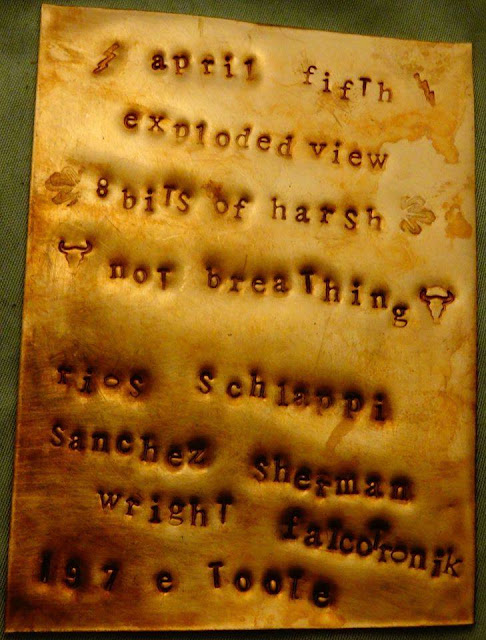 april fifth
exploded view
8bits of harsh
not breathing
rios schlappi
sanchez sherman
wright falcotronik
197 e toole